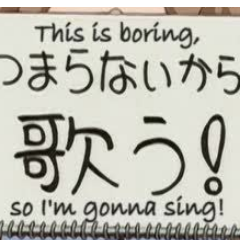 This is boring,
つまらないから
歌う!
so I'm gonna sing!